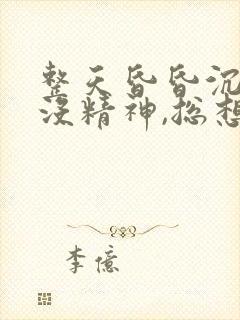 整天昏昏沉
没精神,总想
李億